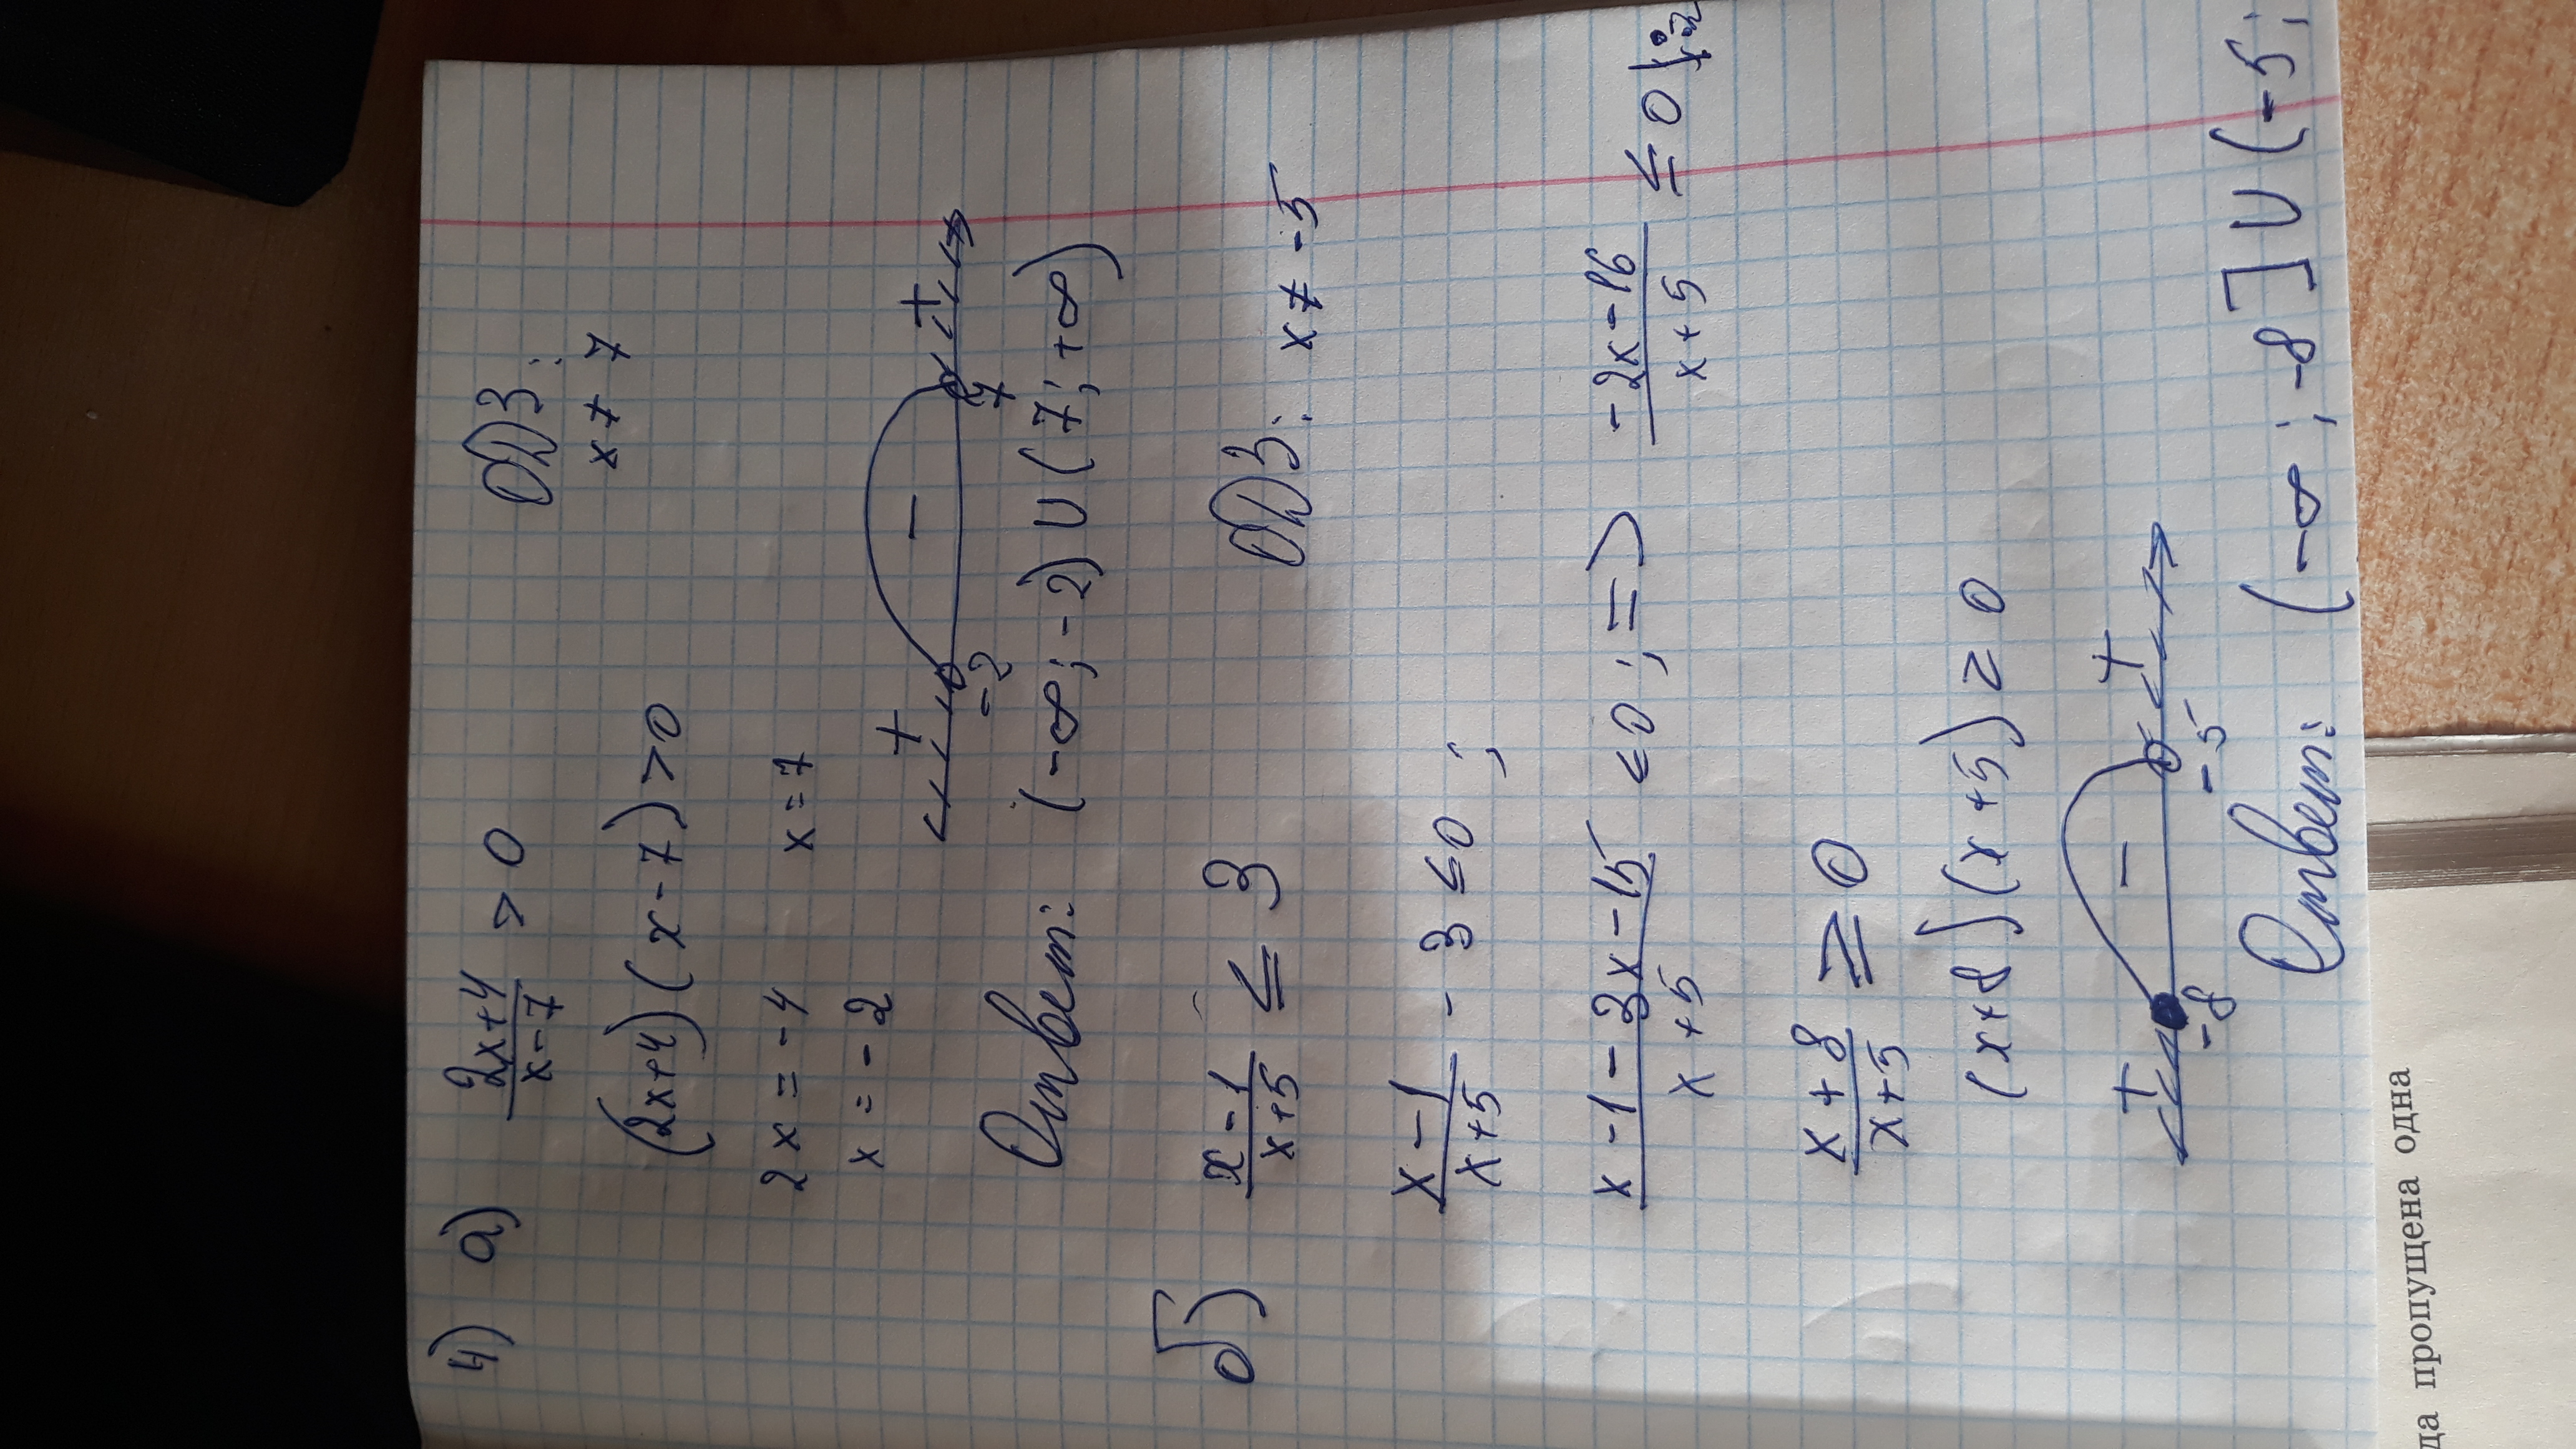 4) а) (2x+4)/(x-7) > 0   ОДЗ:
(2x+4)(x-7)>0   x ≠ 7
2x = -4   x = 7
x = -2
+ - +
-2 7
Ответ: (-∞; -2) ∪ (7; +∞)
б) (x-1)/(x+5) ≤ 3   ОДЗ: x ≠ -5
(x-1)/(x+5) - 3 ≤ 0 ;
(x-1-3x-15)/(x+5) ≤ 0 ; => (-2x-16)/(x+5) ≤ 0 |:
(x+8)/(x+5) ≥ 0
(x+8)(x+5) ≥ 0
+ - +
-8 -5
Ответ: (-∞ ; -8] ∪ (-5;
да пропущена одна